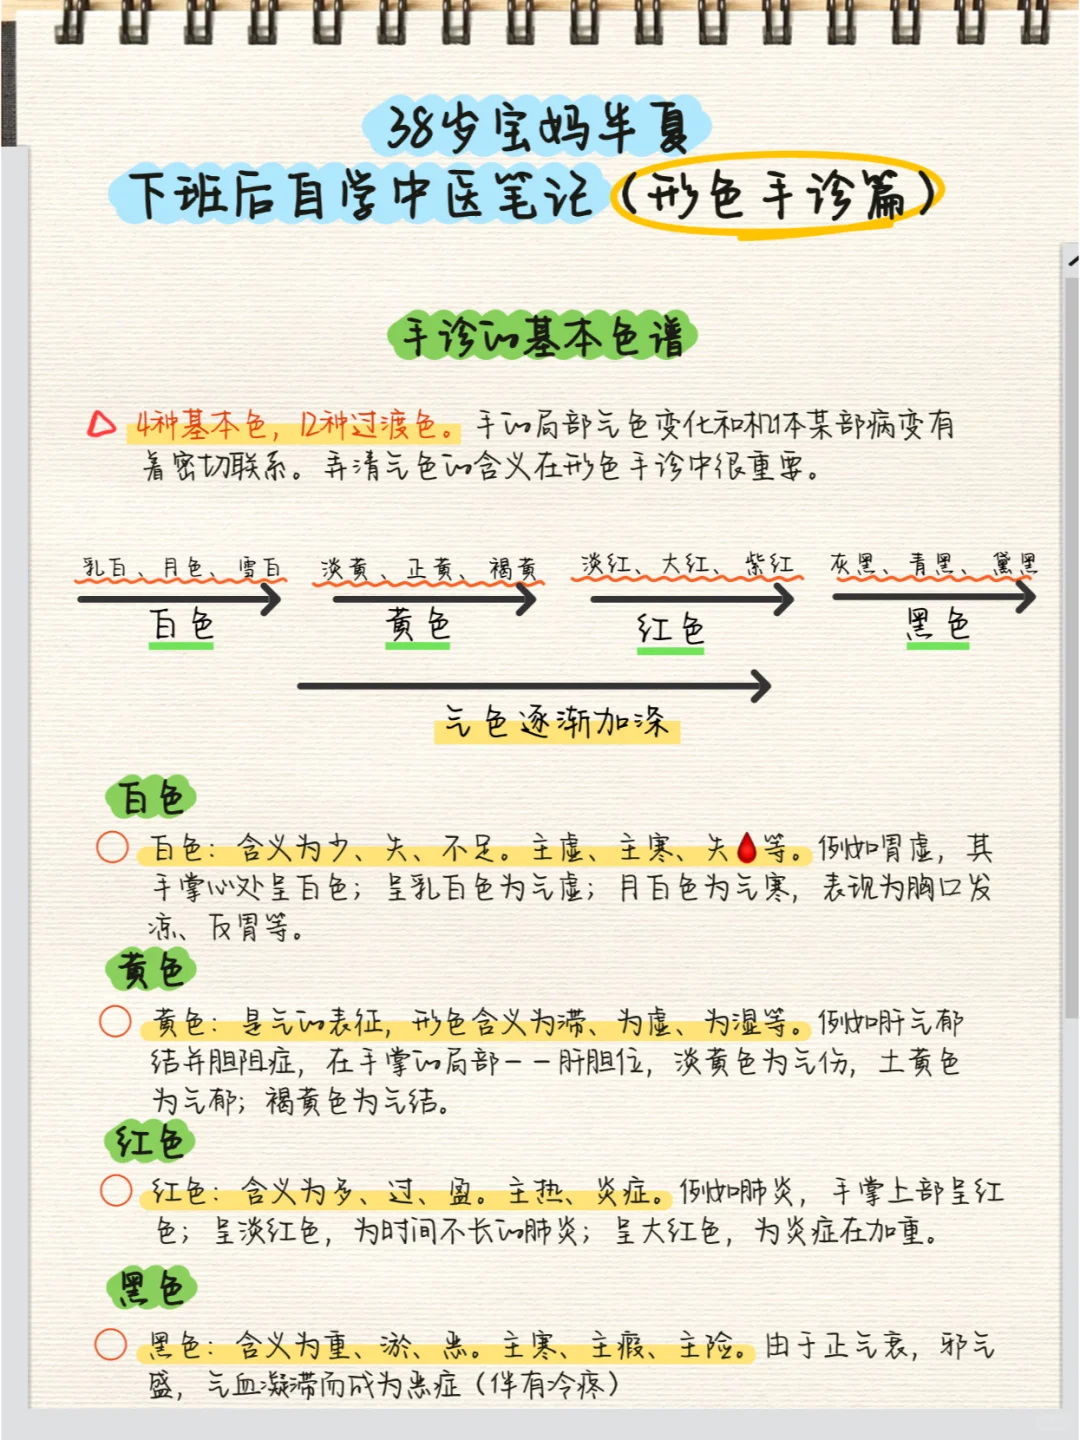 38岁宝妈半夏
下班后自学中医笔记（形色手诊篇）
手诊的基本色谱
4种基本色，12种过渡色。手的局部气色变化和机体某部病变有
着密切联系。弄清气色的含义在形色手诊中很重要。
乳白、月色、雪白 淡黄、正黄、褐黄 淡红、大红、紫红 灰黑、青黑、黛黑
白色 黄色 红色 黑色
气色逐渐加深
白色
白色：含义为少、失、不足。主虚、主寒、失🩸等。例如胃虚，其
手掌心处呈白色；呈乳白色为气虚；月白色为气寒，表现为胸口发
凉、反胃等。
黄色
黄色：是气的表征，形色含义为滞、为虚、为湿等。例如肝气郁
结并胆阻症，在手掌的局部——肝胆位，淡黄色为气伤，土黄色
为气郁；褐黄色为气结。
红色
红色：含义为多、过、盈。主热、炎症。例如肺炎，手掌上部呈红
色；呈淡红色，为时间不长的肺炎；呈大红色，为炎症在加重。
黑色
黑色：含义为重、淤、恶。主寒、主瘕、主险。由于正气衰，邪气
盛，气血凝滞而成为恶症（伴有冷疼）